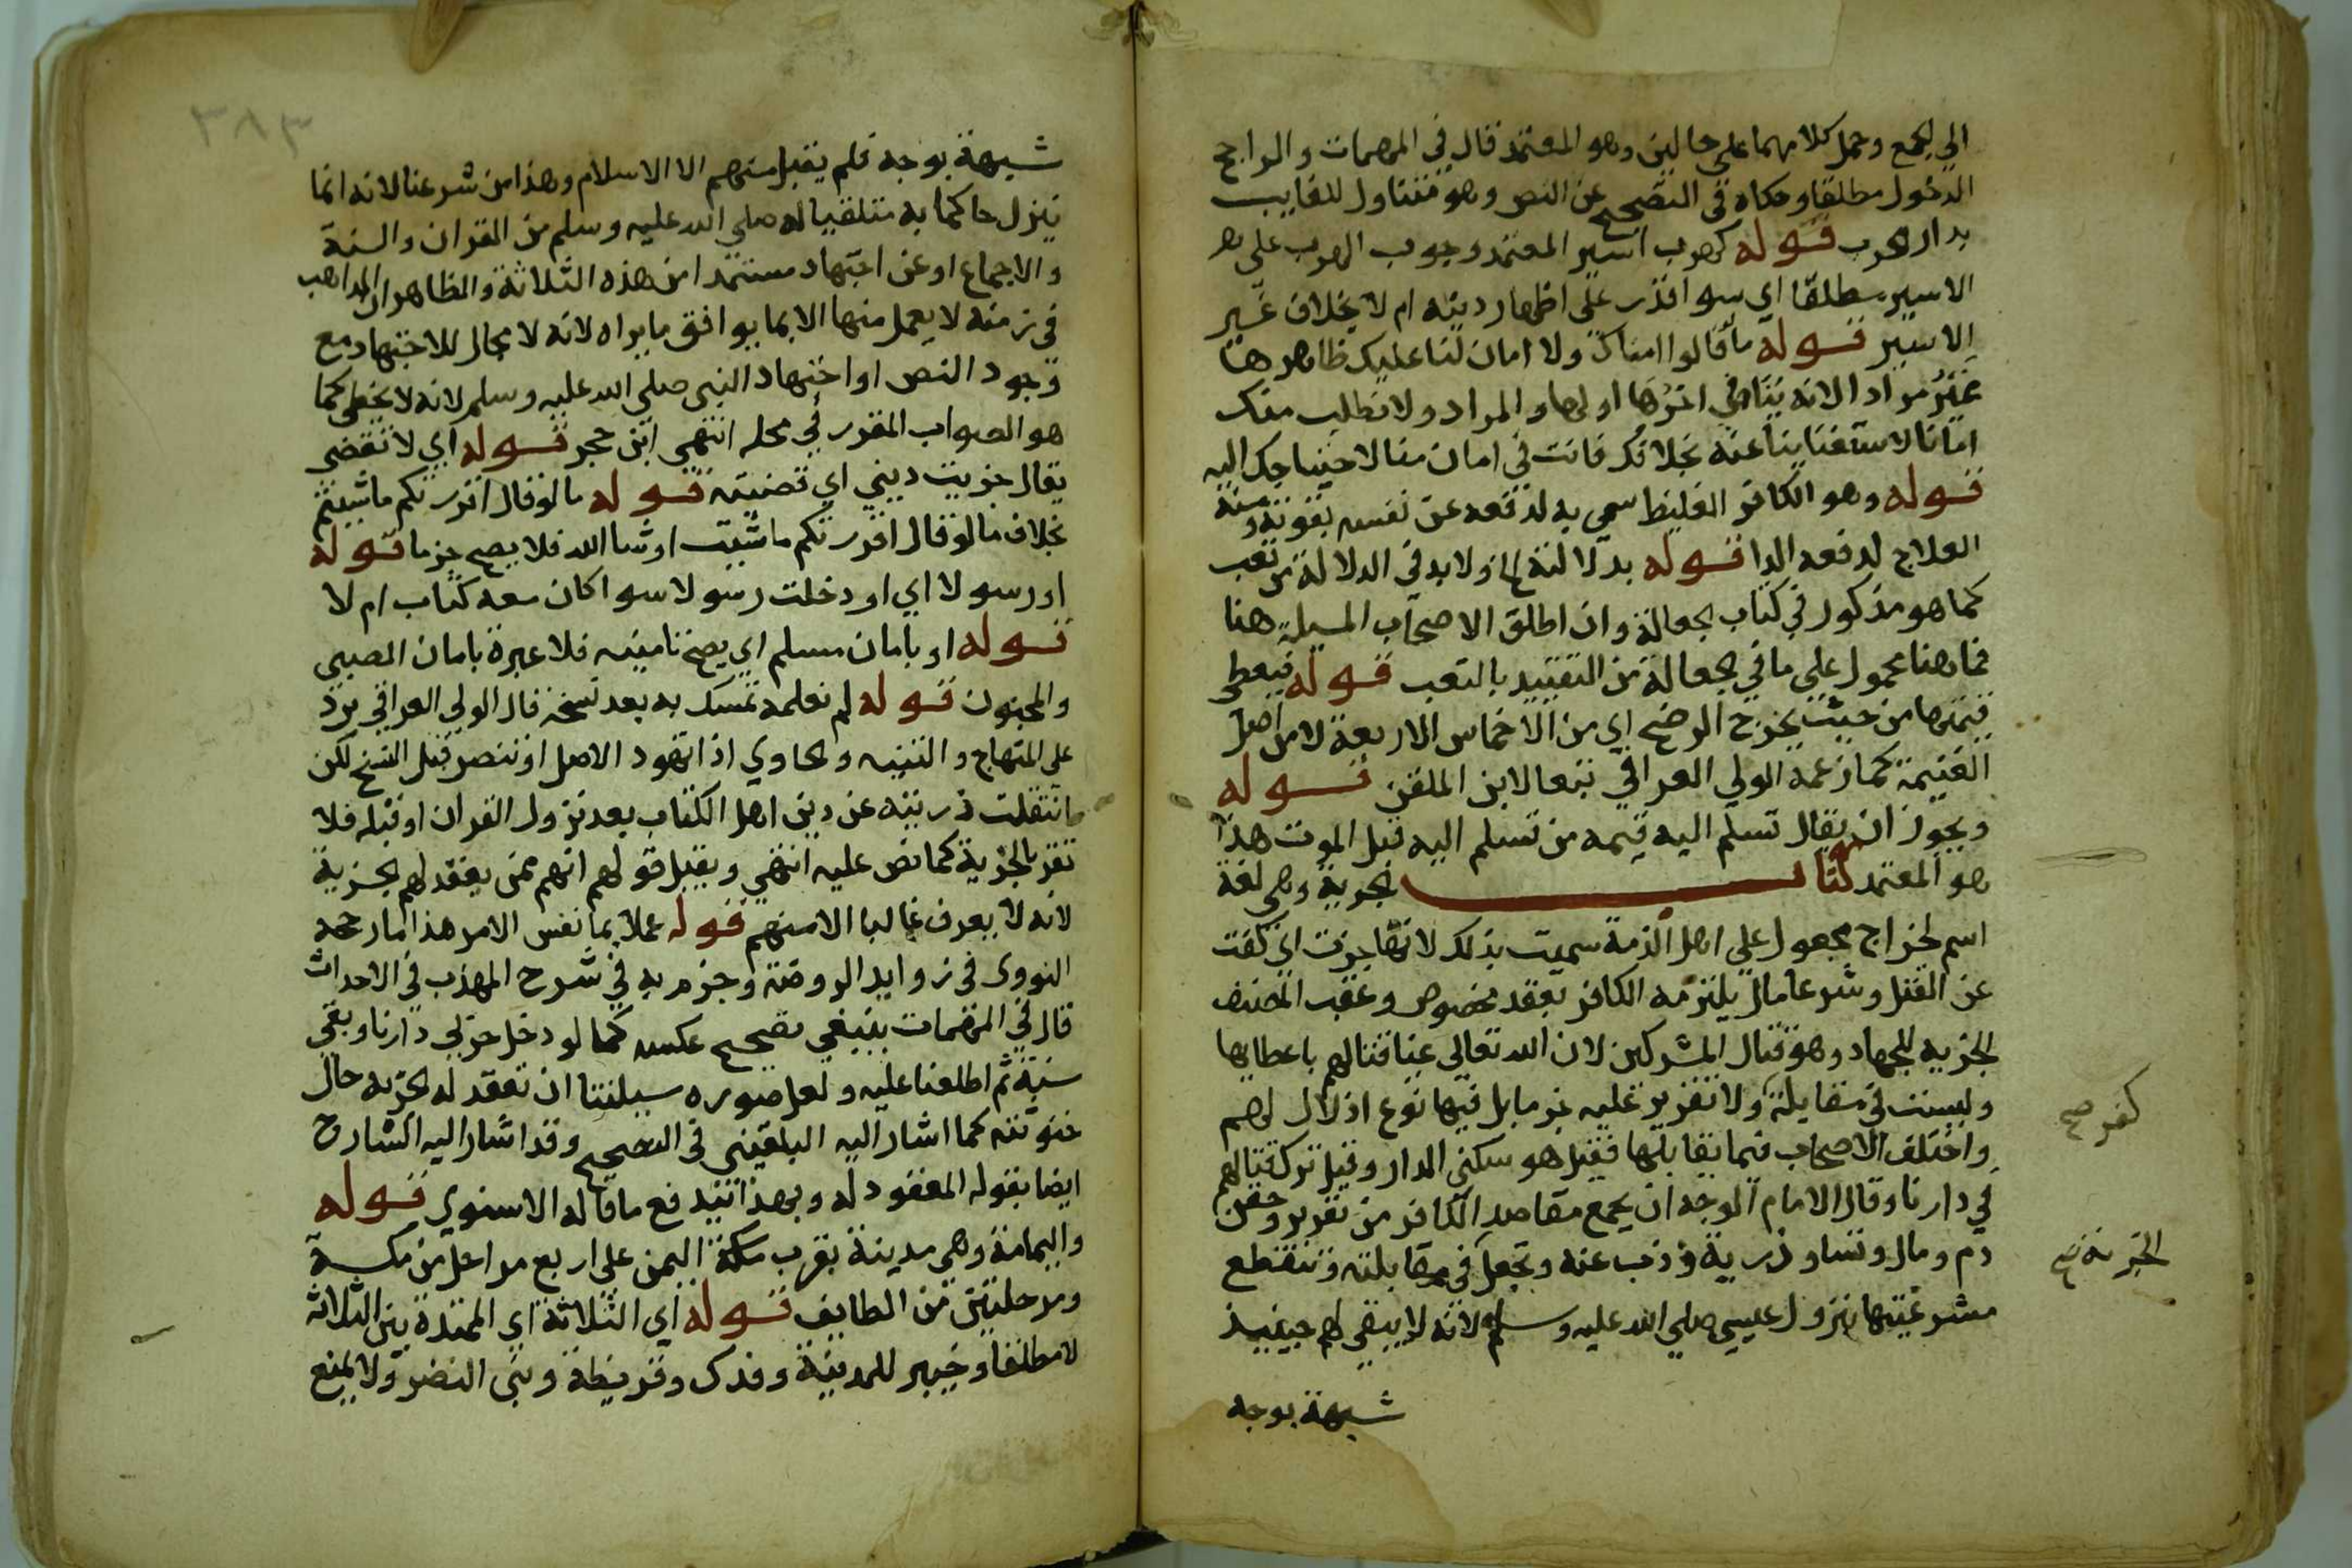 الى الجمع وحمل كلامهما على حالين وهو المعتمد قال في المهمات والراجح
الدخول مطلقا وحكاه في التصحيح عن النص وهو متناول للغايب
بدار الحرب قوله كهرب اسير المعتمد وجوب الهرب على
الاسير مطلقا اي سوا قدر على اظهار دينه ام لا بخلاف غير
الاسير قوله ما قالوا امناك ولا امان لنا عليك ظاهر هنا
غير مراد لانه يتنافي اخرها اولها والمراد ولا نطلب منك
امانا لاستغناينا عنه بخلافك فانت في امان منا لاحتياجك اليه
قوله وهو الكافر الغليظ سمي به لدفعه عن نفسه بقوته ومنه
العلاج لدفعه الدا قوله بدلالته الخ ولابد في الدلالة من تعب
كما هو مذكور في كتاب الجعالة وان اطلق الاصحاب المسيلة هنا
فما هنا محمول على ما في الجعالة من التقييد بالتعب قوله فيعطى
قيمتها من حيث يخرج الرضخ اي من الاخماس الاربعة لا من اصل
الغنيمة كما زعمه الولي العراقي تبعا لابن الملقن قوله
ويجوز ان يقال تسلم اليه قيمه من تسلم اليه قبل الموت هذا
هو المعتمد كتاب الجزية وهي لغة
اسم لخراج مجعول على اهل الذمة سميت بذلك لانها جزت اي كفت
عن القتل وشرعا مال يلتزمه الكافر بعقد مخصوص وعقب المصنف
الجزيه للجهاد وهو قتال المشركين لان الله تعالى غيا قتالهم باعطايها
وليست في مقابلة ولا تقرير عليه جزما بل فيها نوع اذلال لهم
كفر صح
واختلف الاصحاب فيما يقابلها فقيل هو سكنى الدار وقيل ترك قتالهم
في دارنا وقال الامام الوجه ان يجمع مقاصد الكافر من تقرير وحقن
دم ومال ونسا وذرية وذب عنه وتجعل في مقابلته وتنقطع
الجزية صح
مشروعيتها بنزول عيسى صلى الله عليه وسلم لانه لا يبقى لهم حينيذ
شبهة بوجه
٣٨٣
شبهة بوجه فلم يقبل منهم الا الاسلام وهذا من شرعنا لانه انما
ينزل حاكما به متلقيا له صلى الله عليه وسلم من القران والسنة
والاجماع او عن اجتهاد مستمد من هذه الثلاثة والظاهر ان المذاهب
في زمنه لا يعمل منها الا بما يوافق ما يراه لانه لا مجال للاجتهاد مع
وجود النص او اجتهاد النبي صلى الله عليه وسلم لانه لا يخطي كما
هو الصواب المقرر في محله انتهى ابن حجر قوله اي لا تقضي
يقال جزيت ديني اي قضيته قوله ما لو قال اقررتكم ما شيتم
بخلاف ما لو قال اقررتكم ما شيت او شا الله فلا يصح جزما قوله
او رسولا اي او دخلت رسولا سوا كان معه كتاب ام لا
قوله او بامان مسلم اي يصح تامينه فلا عبرة بامان الصبي
والمجنون قوله لم نعلمه تمسك به بعد نسخه قال الولي العراقي يرد
على المنهاج والتنبيه والحاوي اذا تهود الاصل او تنصر قبل النسخ لكن
انتقلت ذريته عن دين اهل الكتاب بعد نزول القران او قبله فلا
تقر بالجزية كما نص عليه انتهى ويقبل قولهم انهم ممن يعقد لهم الجزية
لانه لا يعرف غالبا الا منهم قوله عملا بما نفس الامر هذا ما رجحه
النووي في زوايد الروضة وجزم به في شرح المهذب في الاحداث
قال في المهمات ينبغي تصحيح عكسه كما لو دخل حربي دارنا وبقي
سنة ثم اطلعنا عليه ولعل صوره مسيلتنا ان تعقد له الجزيه حال
خنوثته كما اشار اليه البلقيني في التصحيح وقد اشار اليه الشارح
ايضا بقوله المعقود له وبهذا يندفع ما قاله الاسنوي قوله
واليمامة وهي مدينة بقرب مكة اليمن على اربع مراحل من مكة
ومرحلتين من الطايف قوله اي الثلاثة اي الممتدة بين الثلاثه
لا مطلقا وخيبر للمدينة وفدك وقريظة وبني النضر ولا يمنع